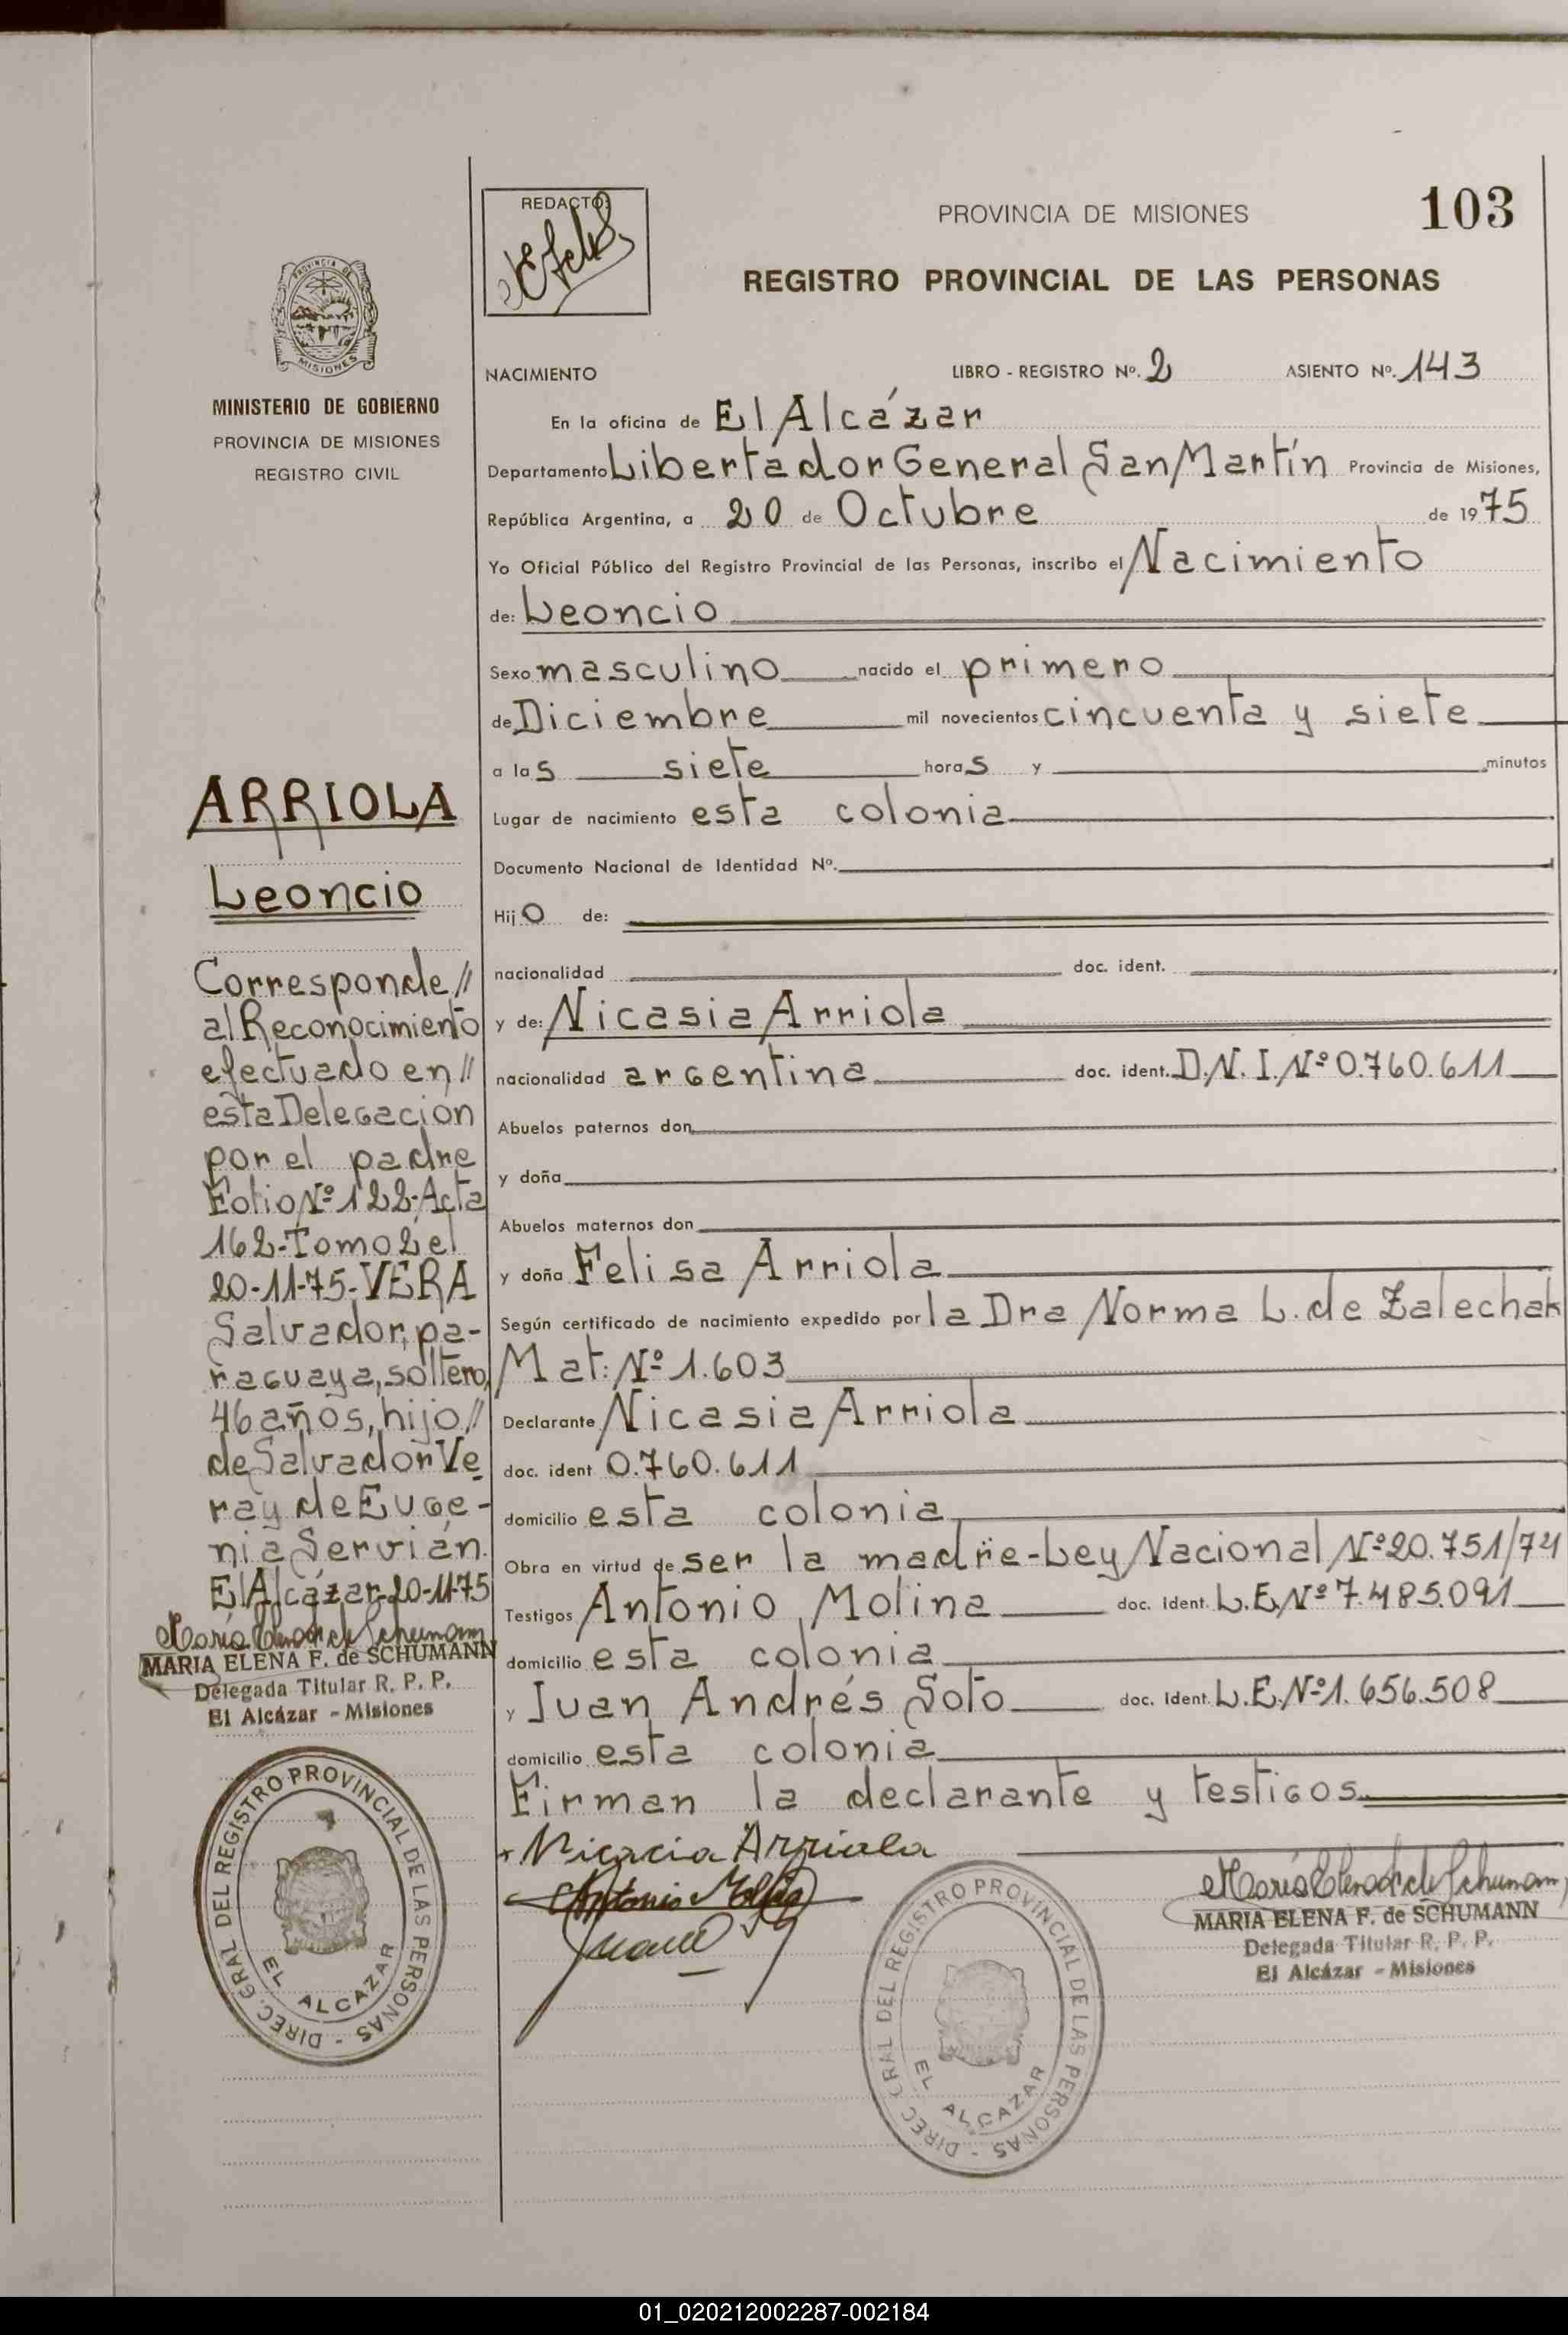 REDACTO:
PROVINCIA DE MISIONES
103
REGISTRO PROVINCIAL DE LAS PERSONAS
PROVINCIA DE
MISIONES
MINISTERIO DE GOBIERNO
PROVINCIA DE MISIONES
REGISTRO CIVIL
NACIMIENTO LIBRO - REGISTRO Nº. 2 ASIENTO Nº. 143
En la oficina de El Alcázar
Departamento Libertador General San Martín Provincia de Misiones,
República Argentina, a 20 de Octubre de 1975
Yo Oficial Público del Registro Provincial de las Personas, inscribo el Nacimiento
de: Leoncio
Sexo masculino nacido el primero
de Diciembre mil novecientos cincuenta y siete
a las siete horas y minutos
Lugar de nacimiento esta colonia
Documento Nacional de Identidad Nº.
Hijo de:
nacionalidad doc. ident.
y de: Nicasia Arriola
nacionalidad argentina doc. ident. D.N.I. Nº 0.760.611
Abuelos paternos don
y doña
Abuelos maternos don
y doña Felisa Arriola
Según certificado de nacimiento expedido por la Dra Norma L. de Zalechak
Mat: Nº 1.603
Declarante Nicasia Arriola
doc. ident 0.760.611
domicilio esta colonia
Obra en virtud de ser la madre-Ley Nacional Nº 20.751/74
Testigos Antonio Molina doc. ident. L.E. Nº 7.485.091
domicilio esta colonia
y Juan Andrés Soto doc. ident. L.E. Nº 1.656.508
domicilio esta colonia
Firman la declarante y testigos
Nicacia Arriola
Antonio Molina
MARIA ELENA F. de SCHUMANN
Delegada Titular R. P. P.
El Alcázar - Misiones
DIREC. GRAL DEL REGISTRO PROVINCIAL DE LAS PERSONAS -
EL ALCAZAR
ARRIOLA
Leoncio
Corresponde //
al Reconocimiento
efectuado en //
esta Delegación
por el padre
Folio Nº 122-Acta
162-Tomo 2 el
20-11-75-VERA
Salvador, pa-
raguaya, soltero,
46 años, hijo //
de Salvador Ve
ra y de Euge-
nia Servián.
El Alcázar-20-11-75
María Elena F. de Schumann
MARIA ELENA F. de SCHUMANN
Delegada Titular R. P. P.
El Alcázar - Misiones
DIREC. GRAL DEL REGISTRO PROVINCIAL DE LAS PERSONAS -
EL ALCAZAR
01_020212002287-002184